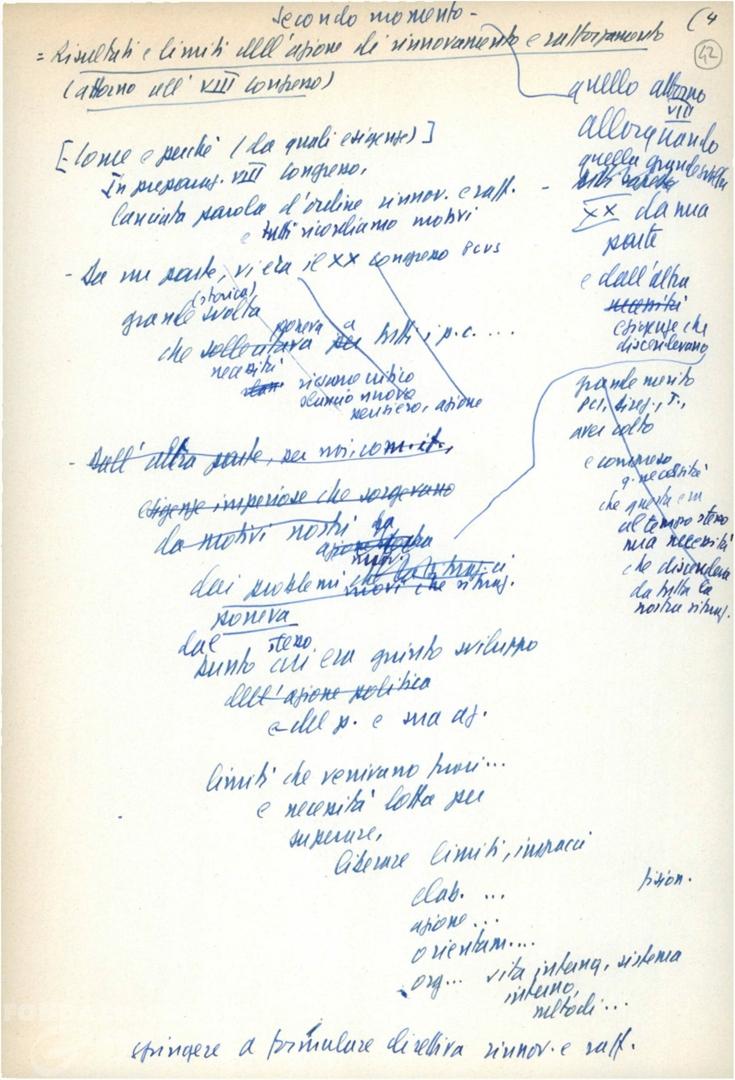 Secondo momento -
(4
42
= Risultati e limiti dell'azione di rinnovamento e rafforzamento
(attorno all' VIII congresso)
quello attorno
VIII
allorquando
quella grande svolta
XX da una
parte
e dall'altra
necessità
esigenze che
discendevano
[- Come e perché (da quali esigenze)]
In preparaz. VIII congresso,
lanciata parola d'ordine rinnov. e raff. -
e tutti ricordiamo motivi
- Da una parte, vi era il XX congresso PCUS
(storica)
grande svolta
poneva a
che sollevava per tutti i p.c. ....
necessità
riesame critico
slancio nuova
pensiero, azione
grande merito
PCI, direz., T.,
aver colto
e connesso
q. necessità
che questa era
al tempo stesso
una necessità
che discendeva
da tutta la
nostra situaz.
- Dall'altra parte, per noi, com. it.,
esigenze imperiose che sorgevano
da motivi nostri
dai problemi
nuovi che situaz.
poneva
dal stesso
punto cui era giunto sviluppo
dell'azione politica
e del p. e sua az.
limiti che venivano fuori...
e necessità lotta per
superare,
liberare limiti, impacci
elab. ...
azione ...
orientam....
org... vita interna, sistema
interno,
metodi...
spingere a formulare direttiva rinnov. e raff.